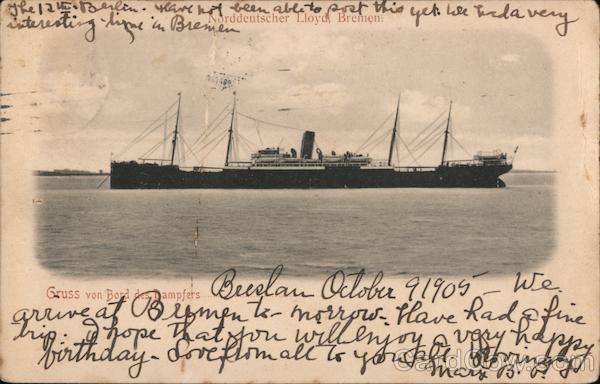 The 12th - Berlin. Have not been able to post this yet. We had a very
interesting time in Bremen
Norddeutscher Lloyd, Bremen.
Gruss von Bord des Dampfers Breslau October 9 1905 - We
arrive at Bremen to-morrow. Have had a fine
trip. I hope that you will enjoy a very happy
birthday - Love from all to you all. Lovingly
Mary B.
CardCow.com